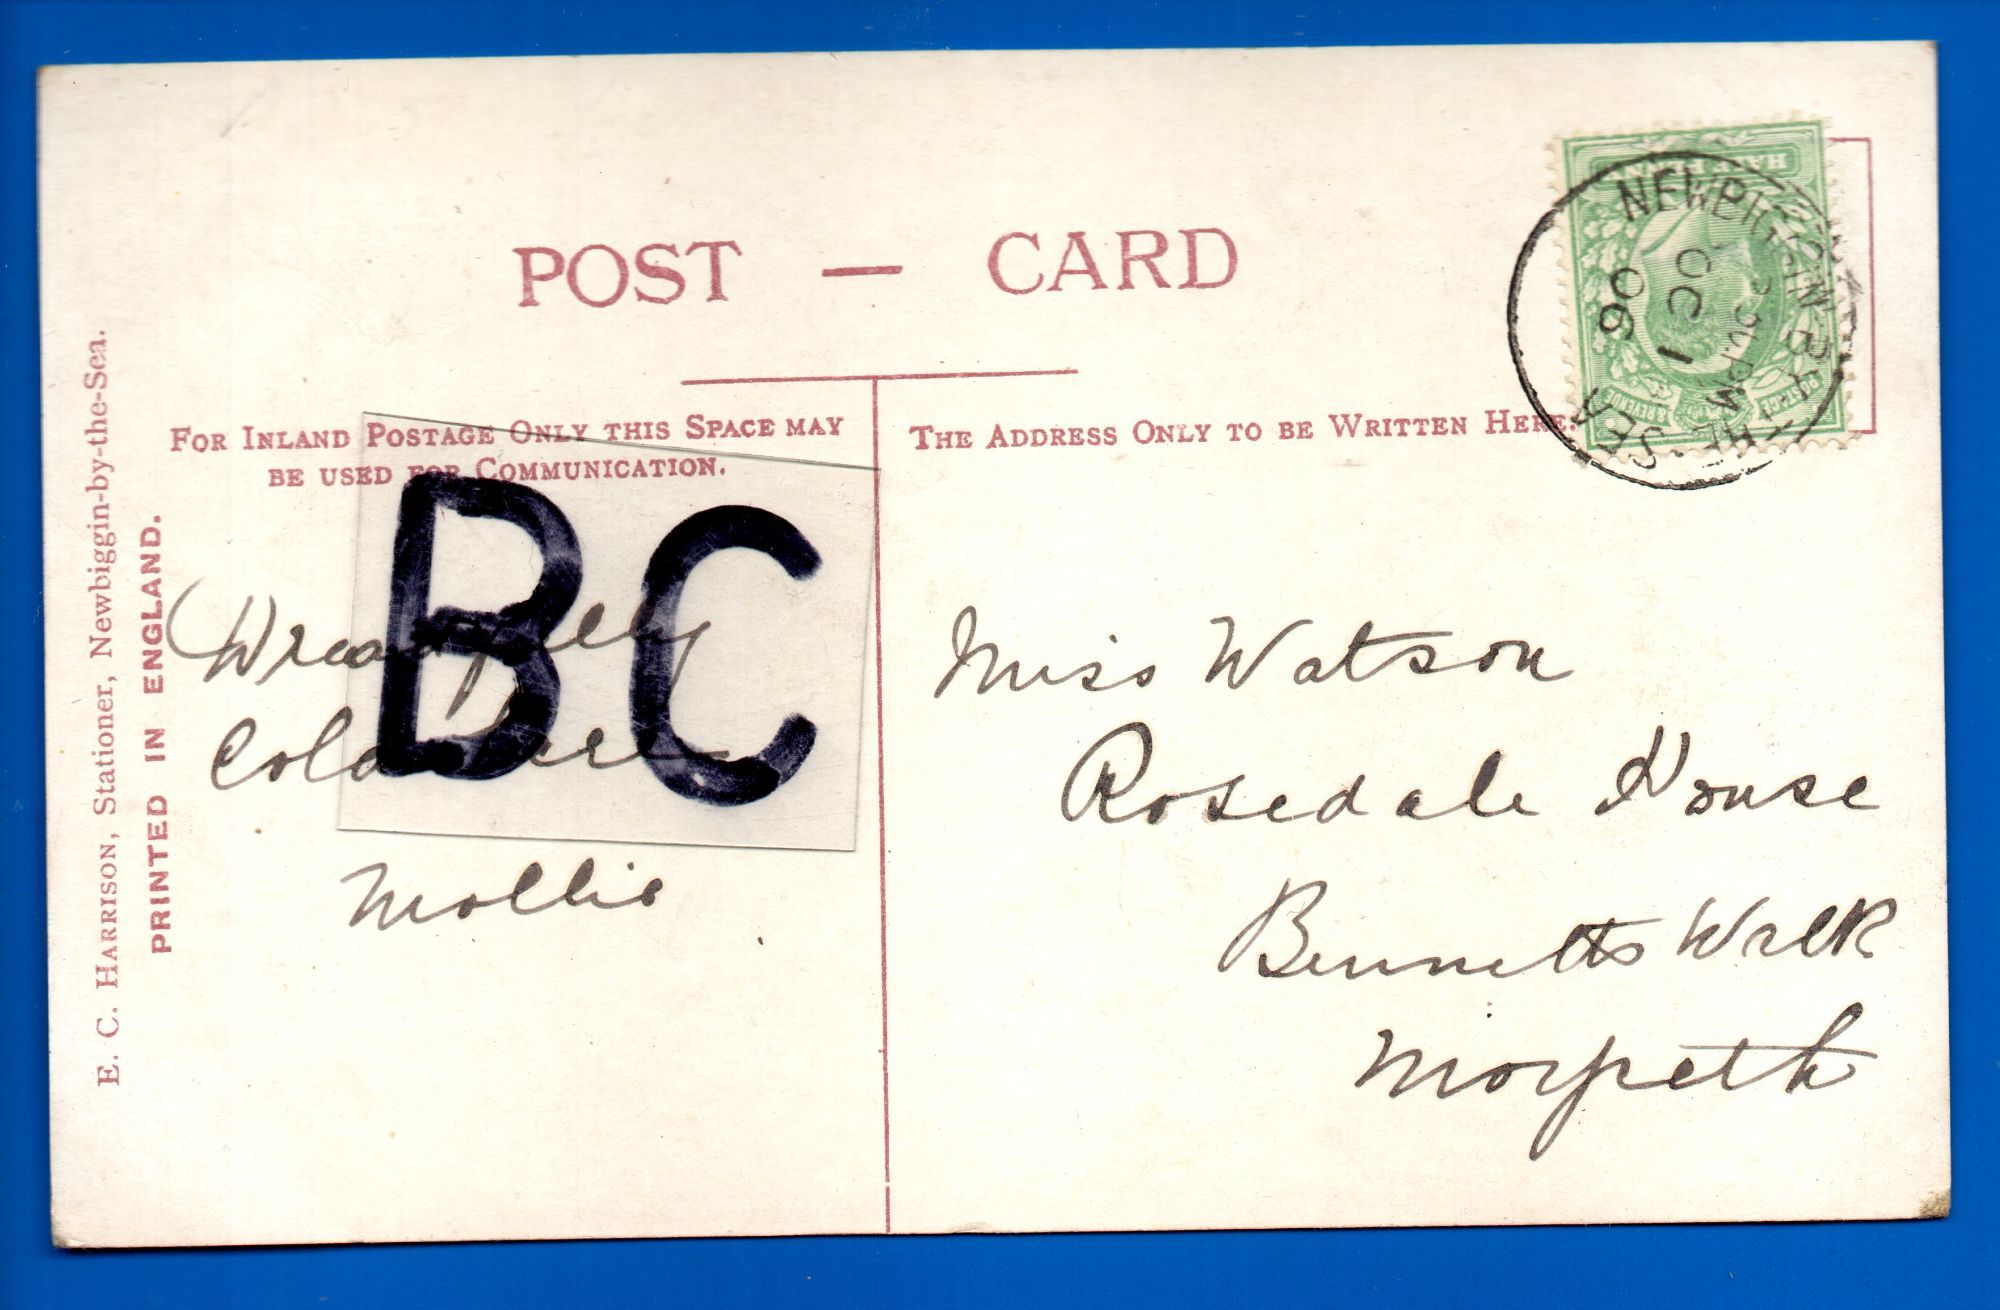 POST — CARD
FOR INLAND POSTAGE ONLY THIS SPACE MAY
BE USED FOR COMMUNICATION.
THE ADDRESS ONLY TO BE WRITTEN HERE.
E. C. HARRISON, Stationer, Newbiggin-by-the-Sea.
PRINTED IN ENGLAND.
BC
Dreadfully
Cold here
Mollie
Miss Watson
Rosedale House
Bennetts Walk
Morpeth
HALF PENNY
POSTAGE & REVENUE
NEWBIGGIN-BY-THE SEA
OC 1
06